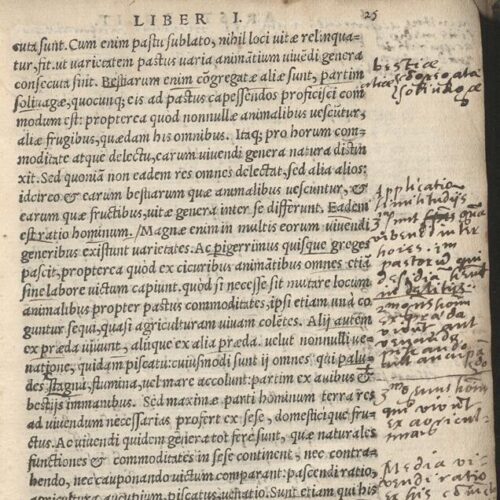 LIBER I. 25
cuta sunt. Cum enim pastu sublato, nihil loci vitæ relinqua-
tur, fit, ut varietatem pastus varia animãtium viuẽdi genera
consecuta sint. Bestiarum enim cõgregatæ aliæ sunt, partim
soliuagæ, quocunq; eis ad pastus capessendos proficisci com
modum est: propterea quòd nonnullæ animalibus vescũtur,
aliæ frugibus, quædam his omnibus. Itaq; pro horum com-
moditate atque delectu, earum uiuendi genera natura distin
xit. Sed quoniã non eadem res omnes delectat, sed alia alios:
idcirco & earum bestiarum quæ animalibus vescuntur, &
earum quæ fructibus, uitæ genera inter se differunt. Eadem
est ratio hominum. Magnæ enim in multis eorum uiuendi
generibus existunt varietates. Ac pigerrimus quisque greges
pascit, propterea quòd ex cicuribus animãtibus omnes etiã
sine labore victum capiunt. quòd si necesse sit mutare locum
animalibus propter pastus commoditates, ipsi etiam und co
guntur sequi, quasi agriculturam viuam colẽtes. Alij autem
ex præda viuunt, alijque ex alia præda. uelut nonnulli ve-
natione, quidam piscatu: cuiusmodi sunt ij omnes qui palu-
des, stagna, flumina, vel mare accolunt: partim ex auibus &
bestijs immanibus. Sed maximæ parti hominum terra res
ad uiuendum necessarias profert ex sese, domesticique fru-
ctus. Ac uiuendi quidem gẽnera tot ferè sunt, quæ naturales
functiones & commoditates in sese continent, nec contra-
bendo, nec cauponando victum comparant: pascendi ratio,
agricultura, aucupium, piscatus, uenatio. Sunt etiam qui his
bestiæ
Applicatio
similitudinis
3º sunt hom
qui vivunt
ex agricul
Media vi